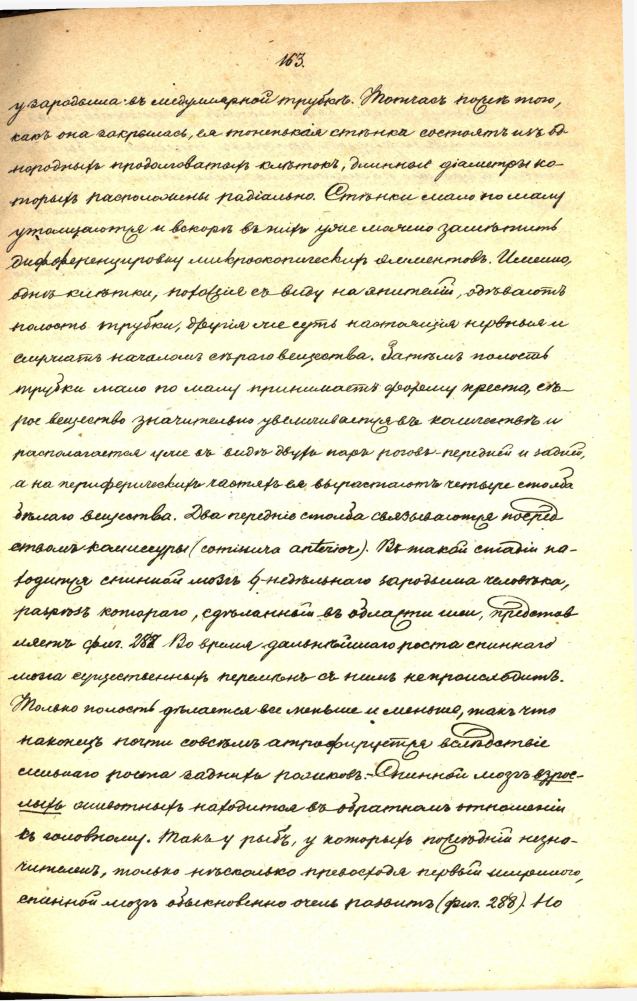 163.
у зародыша въ медуллярной трубкѣ. Тотчасъ послѣ того,
какъ она закрылась, ея тоненькая стѣнка состоятъ изъ од-
нородныхъ продолговатыхъ клѣтокъ, длинные діаметры ко-
торыхъ расположены радіально. Стѣнки мало по малу
утолщаются и вскорѣ въ нихъ уже можно замѣтить
дифференцировку микроскопическихъ элементовъ. Именно,
однѣ клѣтки, похожія съ виду на эпителій, одѣваютъ
полость трубки, другія же суть настоящія нервныя и
служатъ началомъ сѣраго вещества. Затѣмъ полость
трубки мало по малу принимаетъ форму креста, сѣ-
рое вещество значительно увеличивается въ количествѣ и
располагается уже въ видѣ двухъ паръ роговъ передней и задней,
а на периферическихъ частяхъ ея вырастаютъ четыре столба
бѣлаго вещества. Два передніе столба связываются посред
ствомъ комиссуры (comissura anterior). Въ такой стадіи на-
ходится спинной мозгъ 4-недѣльнаго зародыша человѣка,
разрѣзъ котораго, сдѣланный въ области шеи, представ
ляетъ фиг. 287. Во время дальнѣйшаго роста спиннаго
мозга существенныхъ перемѣнъ съ нимъ не происходитъ.
Только полость дѣлается все меньше и меньше, такъ что
наконецъ почти совсѣмъ атрофируется вслѣдствіе
сильнаго роста заднихъ роликовъ. - Спинной мозгъ взрос-
лыхъ животныхъ находится въ обратномъ отношеніи
къ головному. Такъ у рыбъ, у которыхъ послѣдній незна-
чителенъ, только нѣсколько превосходя первый шириною,
спинной мозгъ обыкновенно очень развитъ (фиг. 288). Но